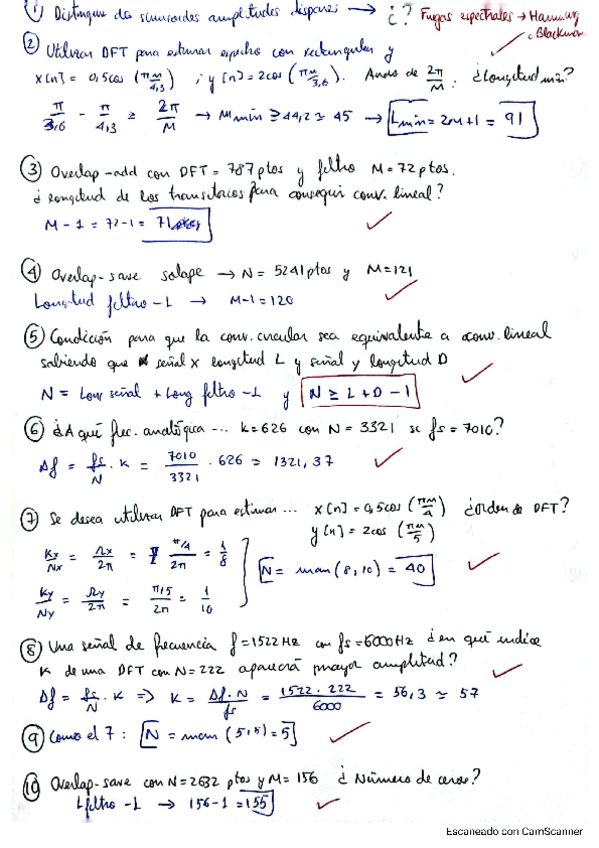 ① Distinguir dos sinusoides amplitudes dispares → ¿? Fugas espectrales → Hamming
Blackman
② Utilizar DFT para estimar espectro con rectangular y
x[n] = 0,5cos (πn/4,3) ; y[n] = 2cos (πn/3,6). Ancho de 2π/M. ¿Longitud min?
π/3,6 - π/4,3 ≥ 2π/M → Mmin ≥ 44,2 ≃ 45 → Lmin = 2M+1 = 91
③ Overlap-add con DFT = 787 ptos y filtro M = 72 ptos.
¿longitud de los transitorios para conseguir conv. lineal?
M-1 = 72-1 = 71
④ Overlap-save solape → N = 5241 ptos y M=121
Longitud filtro -1 → M-1 = 120
⑤ Condición para que la conv. circular sea equivalente a conv. lineal
sabiendo que señal x longitud L y señal y longitud D
N = Long señal + Long filtro -1 y N ≥ L + D - 1
⑥ ¿A qué frec. analógica ... k=626 con N = 3321 si fs = 7010?
Δf = fs/N . k = 7010/3321 . 626 = 1321,37
⑦ Se desea utilizar DFT para estimar ... x[n] = 0,5cos (πn/4) ¿Orden de DFT?
y[n] = 2cos (πn/5)
Kx/Nx = Ωx/2π = π/4/2π = 1/8
N = mcm (8,10) = 40
Ky/Ny = Ωy/2π = π/5/2π = 1/10
⑧ Una señal de frecuencia f=1522 Hz con fs=6000Hz ¿en qué índice
K de una DFT con N=222 aparecerá mayor amplitud?
Δf = fs/N . K => K = Δf . N/fs = 1522 . 222/6000 = 56,3 ≃ 57
⑨ Como el 7: N = mcm (5,5) = 5
⑩ Overlap-save con N=2632 ptos y M= 156 ¿Número de ceros?
Lfiltro -1 → 156-1 = 155
Escaneado con CamScanner